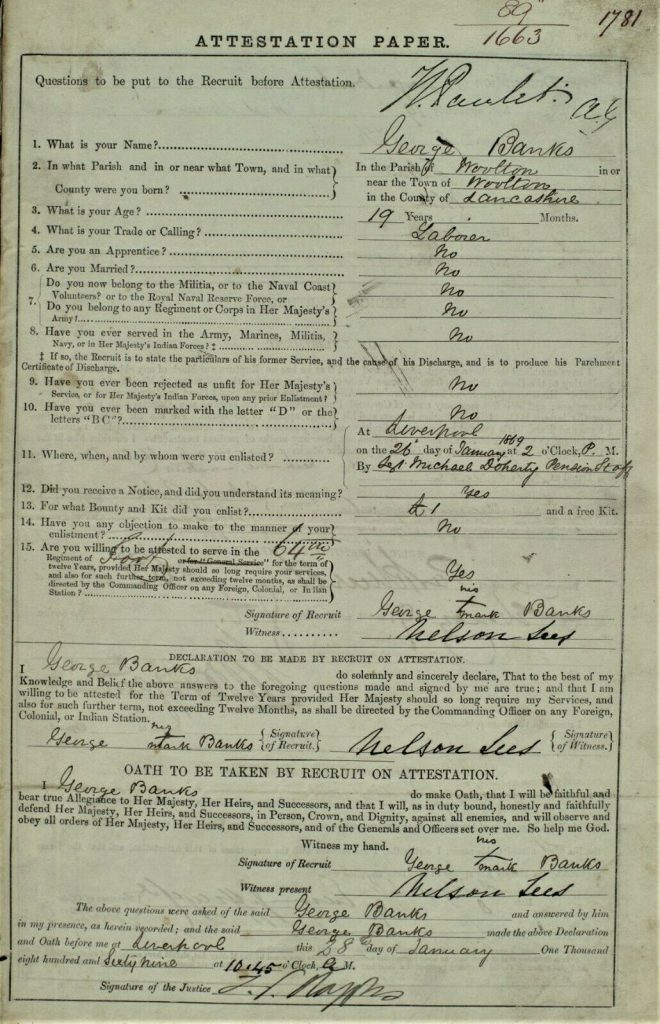 89
1663
1781
ATTESTATION PAPER.
Questions to be put to the Recruit before Attestation.
A.G
1. What is your Name?
George Banks
2. In what Parish and in or near what Town, and in what County were you born?
In the Parish of Woolton in or
near the Town of Woolton
in the County of Lancashire
3. What is your Age?
19 Years Months.
4. What is your Trade or Calling?
Laborer
5. Are you an Apprentice?
No
6. Are you Married?
No
7. Do you now belong to the Militia, or to the Naval Coast
Volunteers? or to the Royal Naval Reserve Force, or
No
Do you belong to any Regiment or Corps in Her Majesty's
Army?
No
8. Have you ever served in the Army, Marines, Militia,
Navy, or in Her Majesty's Indian Forces? ‡
No
‡ If so, the Recruit is to state the particulars of his former Service, and the cause of his Discharge, and is to produce his Parchment
Certificate of Discharge.
9. Have you ever been rejected as unfit for Her Majesty's
Service, or for Her Majesty's Indian Forces, upon any prior Enlistment?
No
10. Have you ever been marked with the letter "D" or the
letters "BC"?
No
11. Where, when, and by whom were you enlisted?
At Liverpool
on the 26 day of January 1869 at 2 o'Clock, P. M.
By Sgt Michael Doherty Pension Staff
12. Did you receive a Notice, and did you understand its meaning?
Yes
13. For what Bounty and Kit did you enlist?
£1 and a free Kit.
14. Have you any objection to make to the manner of your
enlistment?
No
15. Are you willing to be attested to serve in the 64th
Regiment of Foot or for "General Service" for the term of
twelve Years, provided Her Majesty should so long require your services,
and also for such further term, not exceeding twelve months, as shall be
directed by the Commanding Officer on any Foreign, Colonial, or Indian
Station?
Yes
Signature of Recruit George his + mark Banks
Witness Nelson Lees
DECLARATION TO BE MADE BY RECRUIT ON ATTESTATION.
I George Banks do solemnly and sincerely declare, That to the best of my
Knowledge and Belief the above answers to the foregoing questions made and signed by me are true; and that I am
willing to be attested for the Term of Twelve Years provided Her Majesty should so long require my Services, and
also for such further term, not exceeding Twelve Months, as shall be directed by the Commanding Officer on any Foreign,
Colonial, or Indian Station.
George his + mark Banks {Signature of Recruit. Nelson Lees {Signature of Witness.
OATH TO BE TAKEN BY RECRUIT ON ATTESTATION.
I George Banks do make Oath, that I will be faithful and
bear true Allegiance to Her Majesty, Her Heirs, and Successors, and that I will, as in duty bound, honestly and faithfully
defend Her Majesty, Her Heirs, and Successors, in Person, Crown, and Dignity, against all enemies, and will observe and
obey all orders of Her Majesty, Her Heirs, and Successors, and of the Generals and Officers set over me. So help me God.
Witness my hand.
Signature of Recruit George his + mark Banks
Witness present Nelson Lees
The above questions were asked of the said George Banks and answered by him
in my presence, as herein recorded; and the said George Banks made the above Declaration
and Oath before me at Liverpool this 28th day of January One Thousand
eight hundred and Sixty nine at 10.45 o'Clock, A M.
Signature of the Justice